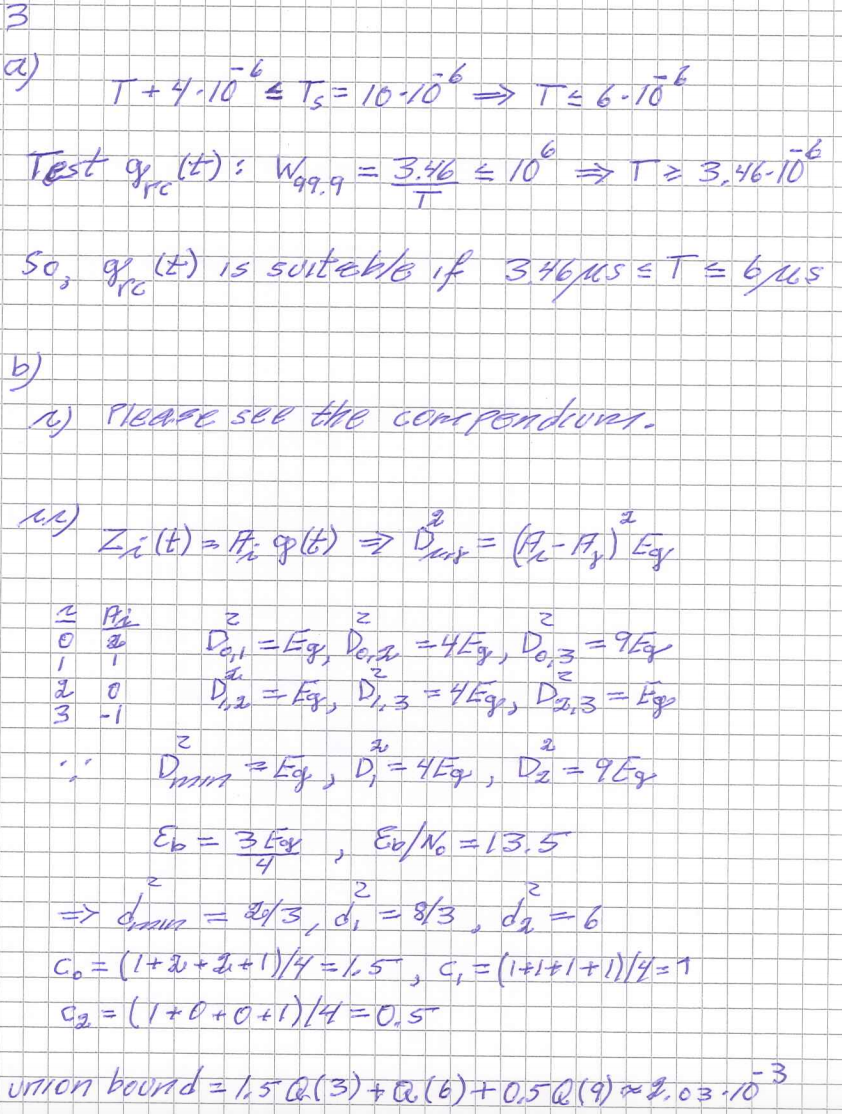 3
a)
T + 4·10⁻⁶ ≤ Tₛ = 10·10⁻⁶ ⇒ T ≤ 6·10⁻⁶
Test g_rc(t): W₉₉.₉ = 3.46/T ≤ 10⁶ ⇒ T ≥ 3.46·10⁻⁶
So, g_rc(t) is suitable if 3.46 μs ≤ T ≤ 6 μs
b)
i) Please see the compendium.
ii) z_i(t) = A_i g(t) ⇒ D²_i,j = (A_i - A_j)² E_g
i A_i
0 2 D²₀,₁ = E_g, D²₀,₂ = 4E_g, D²₀,₃ = 9E_g
1 1
2 0 D²₁,₂ = E_g, D²₁,₃ = 4E_g, D²₂,₃ = E_g
3 -1
∵ D²_min = E_g, D₁² = 4E_g, D₂² = 9E_g
ℰ_b = 3E_g/4, ℰ_b/N₀ = 13.5
⇒ d²_min = 2/3, d₁² = 8/3, d₂² = 6
c₀ = (1+2+2+1)/4 = 1.5, c₁ = (1+1+1+1)/4 = 1
c₂ = (1+0+0+1)/4 = 0.5
union bound = 1.5Q(3) + Q(6) + 0.5Q(9) ≈ 2.03·10⁻³